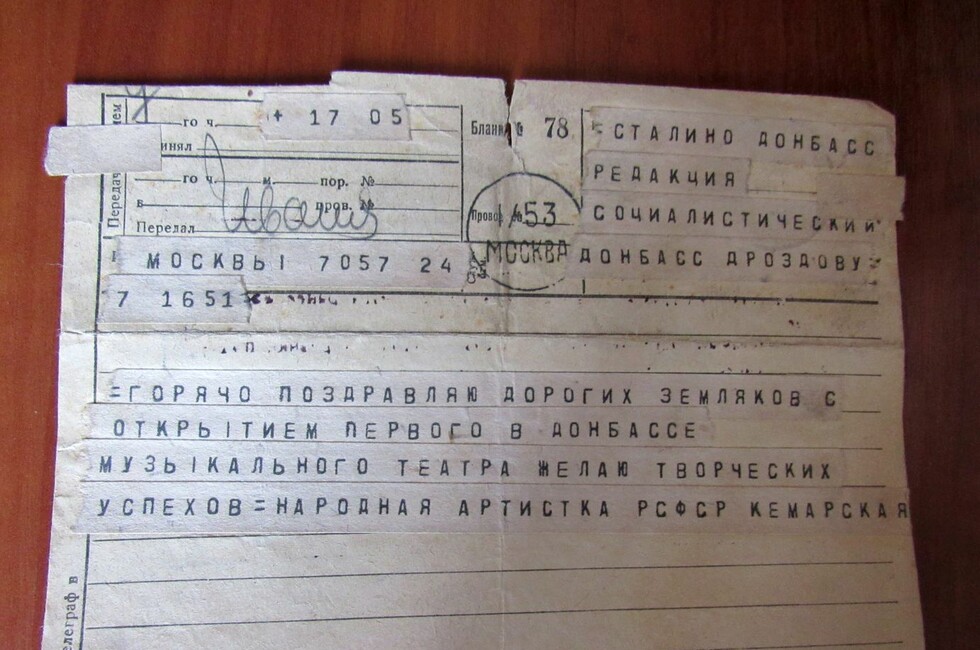 го ч.
+ 17 05
Бланк № 78
=СТАЛИНО ДОНБАСС
РЕДАКЦИЯ
СОЦИАЛИСТИЧЕСКИЙ
ДОНБАСС ДРОЗДОВУ=
го ч. м. пор. №
в пров. №
Передал
Провод №
53
МОСКВА
= МОСКВЫ 7057 24
7 1651
=ГОРЯЧО ПОЗДРАВЛЯЮ ДОРОГИХ ЗЕМЛЯКОВ С
ОТКРЫТИЕМ ПЕРВОГО В ДОНБАССЕ
МУЗЫКАЛЬНОГО ТЕАТРА ЖЕЛАЮ ТВОРЧЕСКИХ
УСПЕХОВ=НАРОДНАЯ АРТИСТКА РСФСР КЕМАРСКАЯ